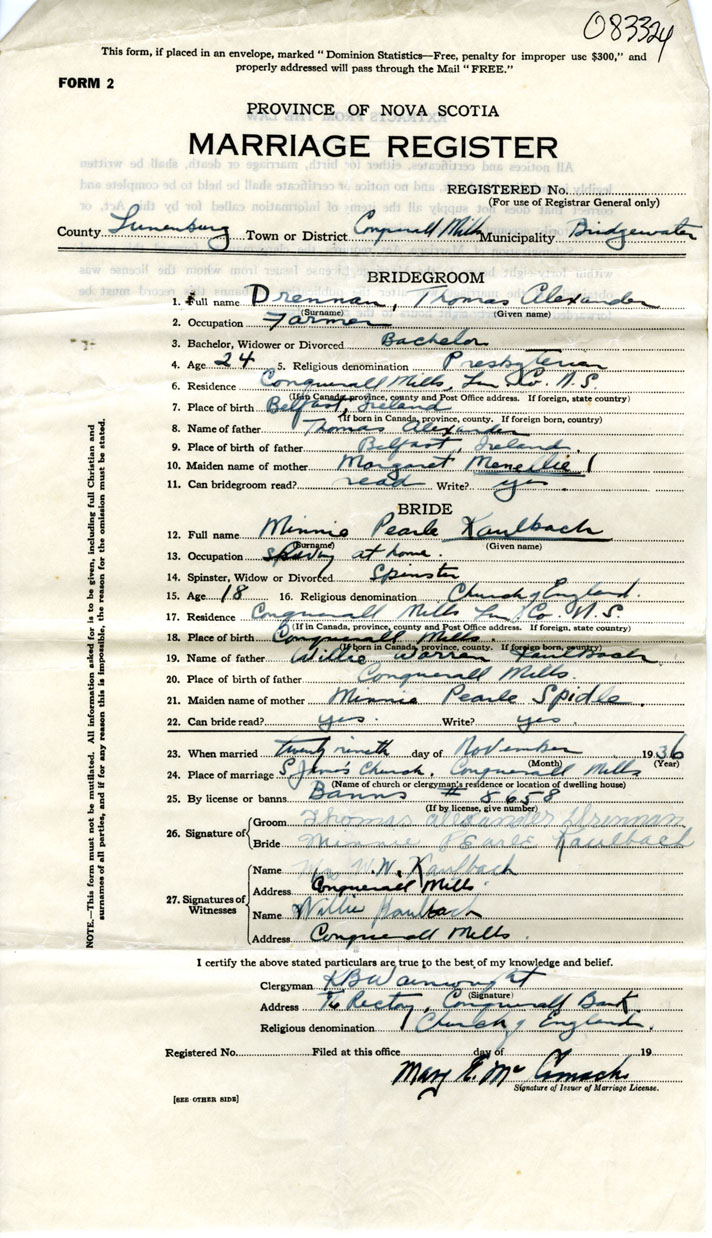 083324
This form, if placed in an envelope, marked "Dominion Statistics—Free, penalty for improper use $300," and
properly addressed will pass through the Mail "FREE."
FORM 2
PROVINCE OF NOVA SCOTIA
MARRIAGE REGISTER
REGISTERED No.
(For use of Registrar General only)
County Lunenburg Town or District Conquerall Mills Municipality Bridgewater
BRIDEGROOM
1. Full name Drennan, Thomas Alexander
(Surname) (Given name)
2. Occupation Farmer
3. Bachelor, Widower or Divorced Bachelor
4. Age 24 5. Religious denomination Presbyterian
6. Residence Conquerall Mills, Lun Co. N.S
(If in Canada, province, county and Post Office address. If foreign, state country)
7. Place of birth Belfast, Ireland
(If born in Canada, province, county. If foreign born, country)
8. Name of father Thomas Alexander
9. Place of birth of father Belfast, Ireland.
10. Maiden name of mother Margaret
11. Can bridegroom read? read Write? yes
BRIDE
12. Full name Minnie Pearle Kaulbach
(Surname) (Given name)
13. Occupation at home.
14. Spinster, Widow or Divorced Spinster
15. Age 18 16. Religious denomination Church of England.
17. Residence Conquerall Mills Lun Co. N.S.
(If in Canada, province, county and Post Office address. If foreign, state country)
18. Place of birth Conquerall Mills.
(If born in Canada, province, county. If foreign born, country)
19. Name of father Willie Warren Kaulbach
20. Place of birth of father Conquerall Mills.
21. Maiden name of mother Minnie Pearle Spidle.
22. Can bride read? yes. Write? yes
23. When married twenty nineth day of November 1936
(Month) (Year)
24. Place of marriage St James Church, Conquerall Mills
(Name of church or clergyman's residence or location of dwelling house)
25. By license or banns Banns # 5658
(If by license, give number)
26. Signature of
Groom Thomas Alexander Drennan
Bride Minnie Pearle Kaulbach
27. Signatures of Witnesses
Name Mrs W.W. Kaulbach
Address Conquerall Mills.
Name Willie Kaulbach
Address Conquerall Mills
I certify the above stated particulars are true to the best of my knowledge and belief.
Clergyman KB Wainwright
(Signature)
Address The Rectory, Conquerall Bank.
Religious denomination Church of England.
Registered No. Filed at this office day of 19
Mary E. Mc
Signature of Issuer of Marriage License.
[SEE OTHER SIDE]
NOTE.—This form must not be mutilated. All information asked for is to be given, including full Christian and
surnames of all parties, and if for any reason this is impossible, the reason for the omission must be stated.